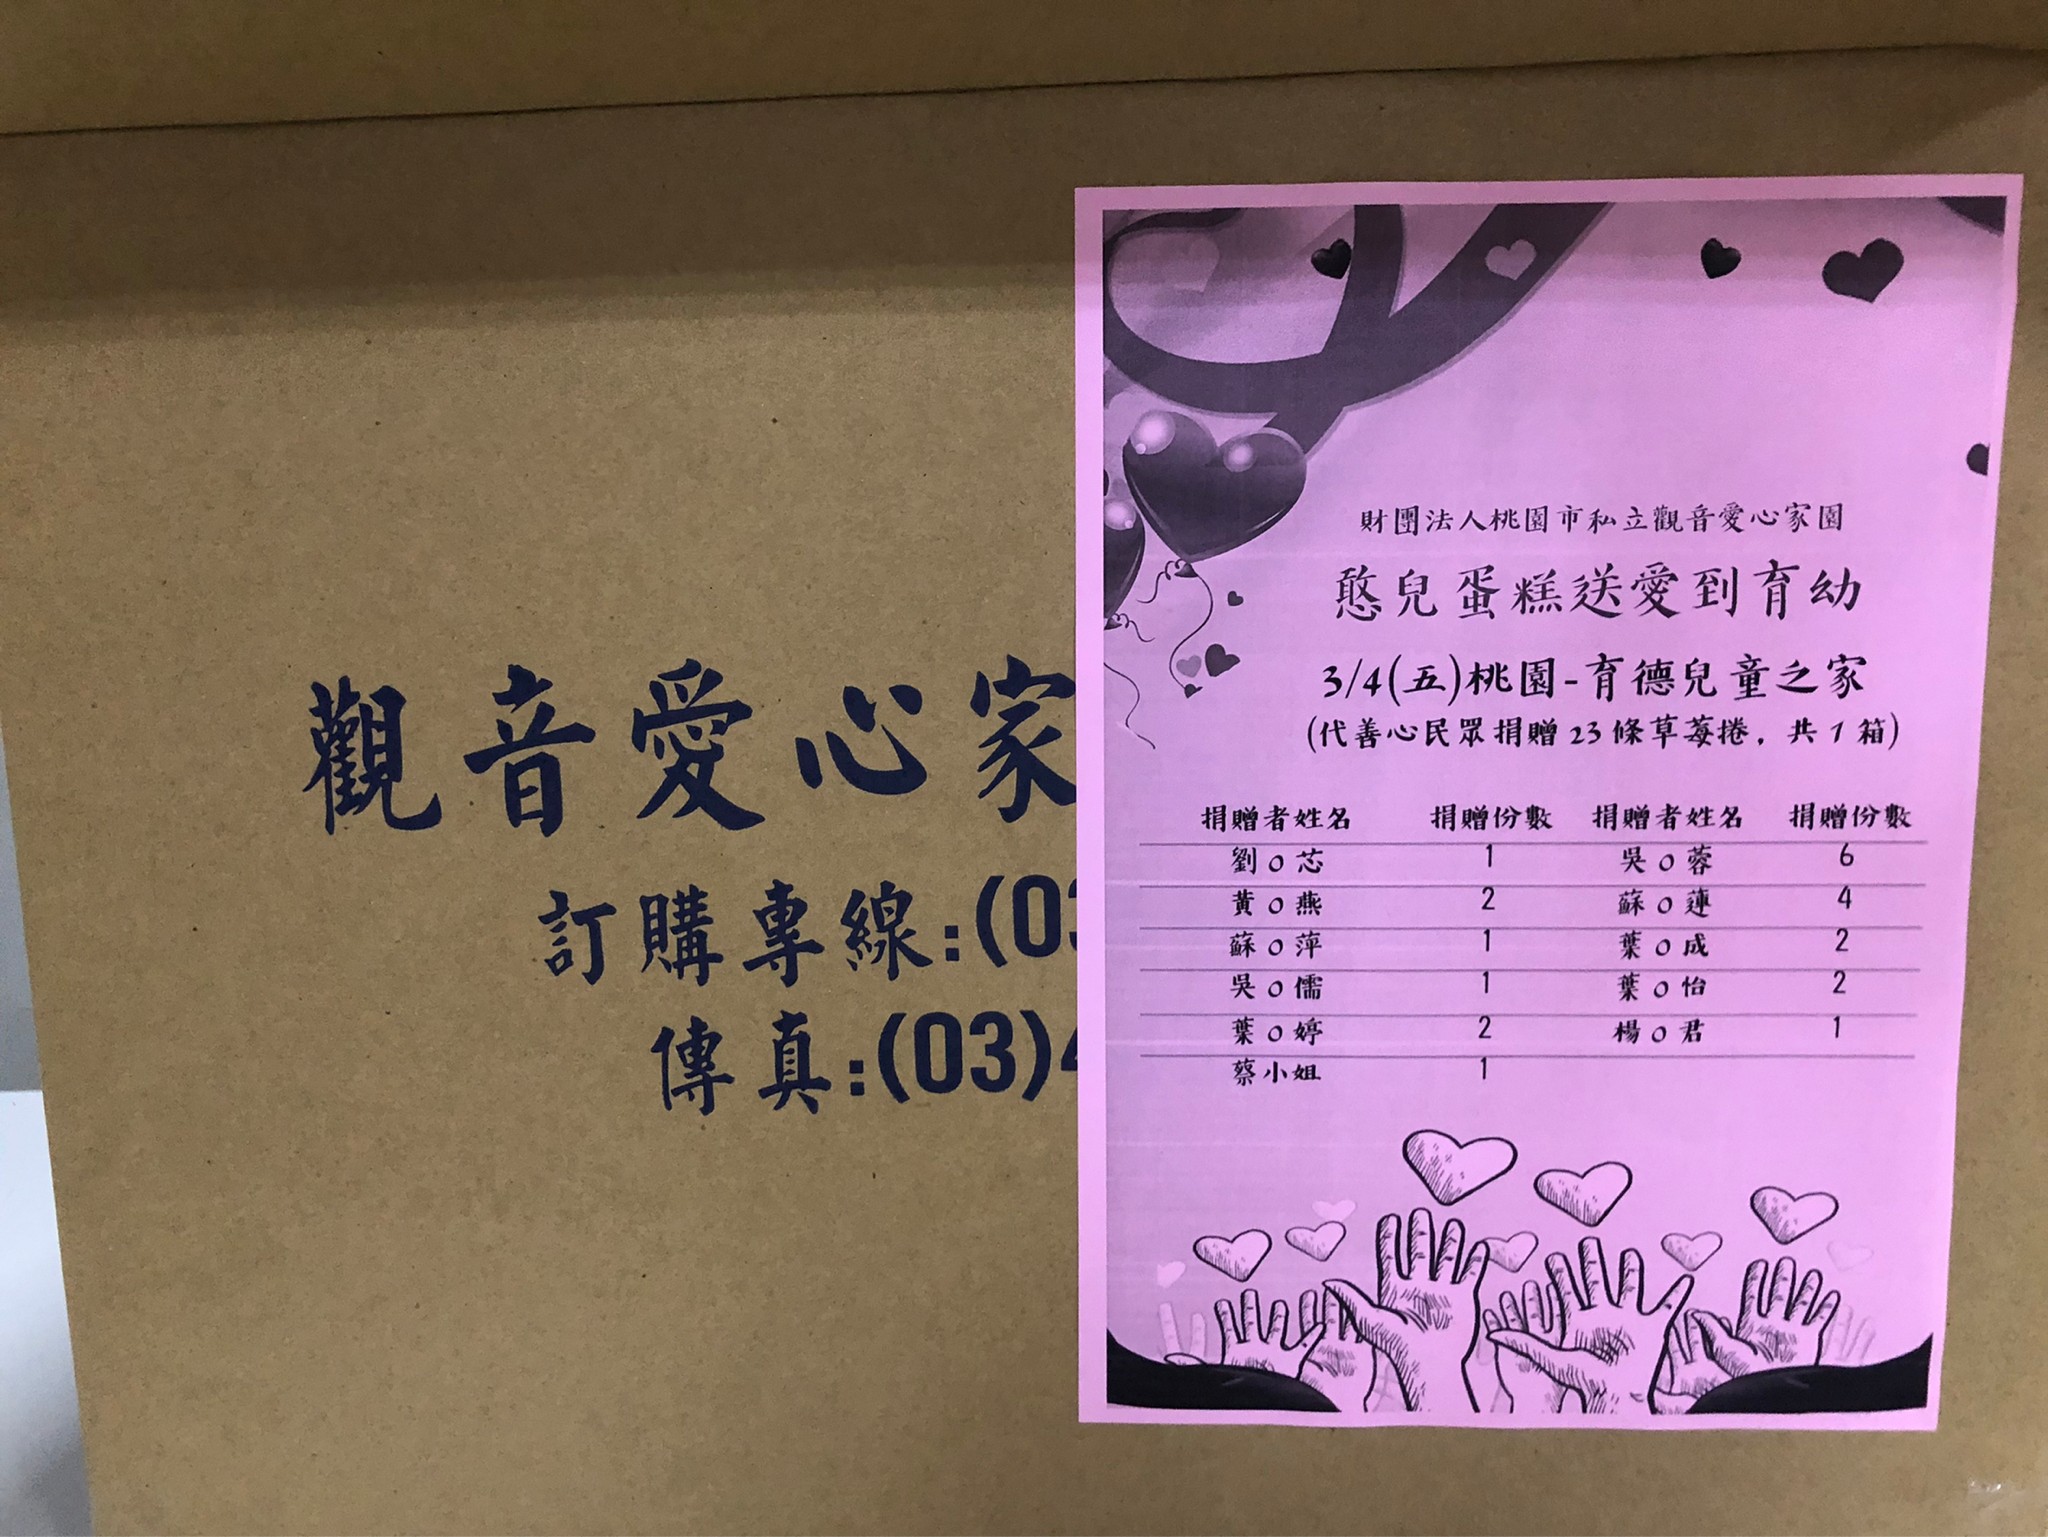 觀音愛心家
訂購專線:(03
傳真:(03)4
財團法人桃園市私立觀音愛心家園
憨兒蛋糕送愛到育幼
3/4(五)桃園-育德兒童之家
(代善心民眾捐贈23條草莓捲，共1箱)
捐贈者姓名 捐贈份數 捐贈者姓名 捐贈份數
劉O芯 1 吳O蓉 6
黃O燕 2 蘇O蓮 4
蘇O萍 1 葉O成 2
吳O儒 1 葉O怡 2
葉O婷 2 楊O君 1
蔡小姐 1